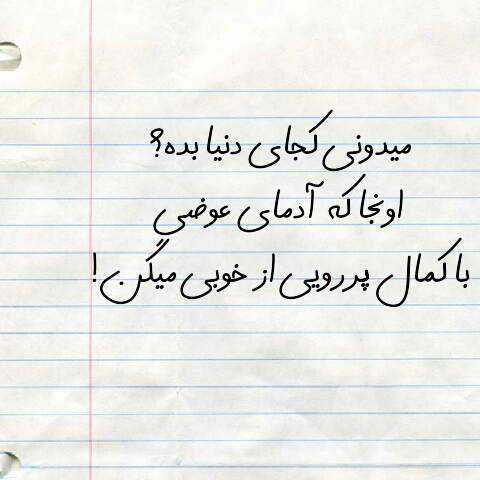 میدونی کجای دنیا بده؟
اونجا که آدمای عوضی
با کمال پررویی از خوبی میگن!